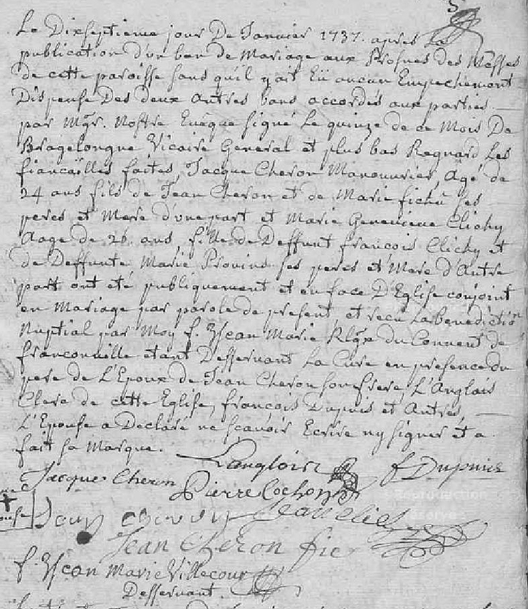 Le Dixseptieme jour De Janvier 1737. apres La
publication d'un ban de Mariage aux Prosnes des Messes
de cette paroisse sans quil y ait Eü aucun Empechement
Dispense Des deux Autres bans accordés aux parties
par Mgr. Nostre Eveque signé Le quinze de ce Mois De
Bragelongue Vicaire General et plus bas Regnard Les
fiancailles faites, Jacque Cheron Manouvrier Agé de
24 ans fils de Jean Cheron et de Marie fichu ses
peres et Mere d'une part et Marie Genevieve Clichy
Aagé de 26. ans, fille de Deffunt francois Clichy et
de Deffunte Marie Provins ses peres et Mere d'Autre
part ont été publiquement et en face D'Eglise conjoint
en Mariage par parole de present et recu La benediction
Nuptial par Moy f. Yscan Marie Rlgx du Convent de
franconville etant Desservant La Cure en presence du
pere de L'Epoux de Jean Cheron son frere L'Anglais
Clerc de cette Eglise, francois Dupuis et Autres,
L'Epouse a Declaré ne scavoir Ecrire ny signer et a
fait sa Marque.
Langlois f Dupuis
Jacque Cheron Pierre Cochon
Jean cheron
Jean Cheron
f. Yscan Marie Villecour
Desservant